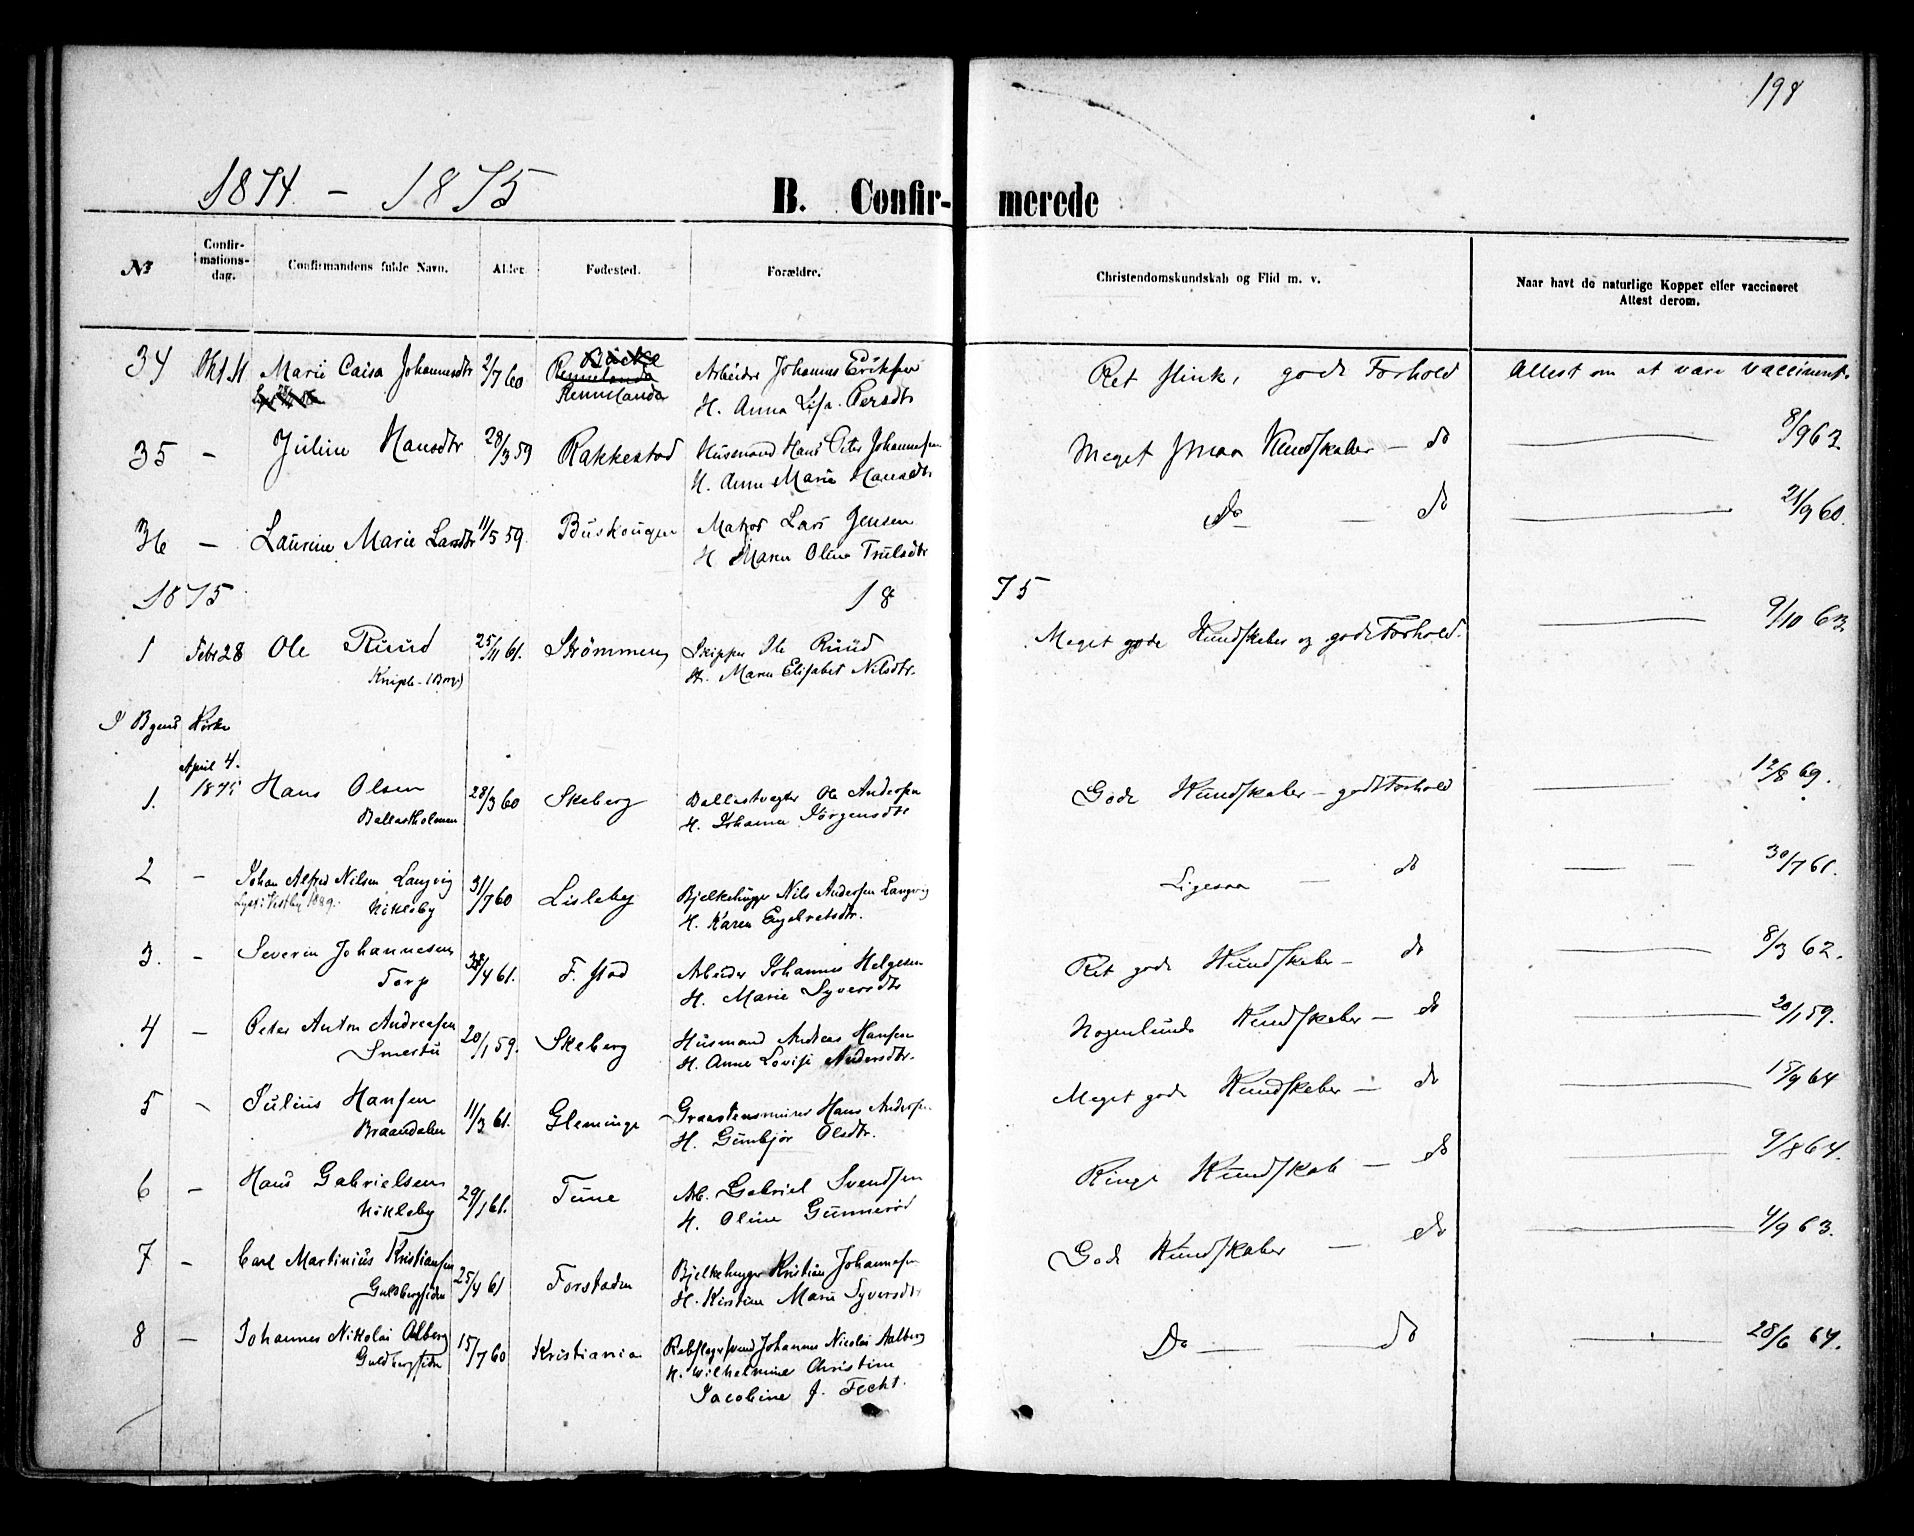 198
1874 - 1875
B. Confir- merede
No Confir-mations-dag. Confirmandens fulde Navn. Alder. Fødested. Forældre. Christendomskundskab og Flid m. v. Naar havt de naturlige Kopper eller vaccineret Attest derom.
34 Okt Marie Caisa Johannesdtr 2/7 60 Rennelanda Arbeider Johannes Eriksen Ret flink, godt Forhold Attest om at være vaccineret.
Rennelanda H. Anna Lisa Persdtr
35 - Juline Hansdtr 28/3 59 Rakkestad Husmand Hans Peter Johannesen Meget smaa Kundskaber - do 8/9 63.
H. Anne Marie Hansdtr
36 - Laurine Marie Larsdtr 11/5 59 Buskougen Matros Lars Jensen Do - do 21/9 60.
H Maren Oline Trulsdtr
1875 18 75
1 Febr 28 Ole Ruud 25/11 61. Strømmen Skipper Ole Ruud Meget gode Kundskaber og godt Forhold. 9/10 63.
Kniple (Borge) H. Maren Elisabet Nilsdtr.
I Byens Kirke
April 4.
1. 1875 Hans Olsen 28/3 60 Skeberg Ballastvogter Ole Andersen Gode Kundskaber - godt Forhold 12/8 69.
Ballastholmen H. Johanne Jörgensdtr
2 - Johan Alfred Nilsen Langvig 31/7 60 Lisleby Bjelkehugger Nils Andersen Langvig Ligesaa - do 30/7 61.
Nökleby H. Karen Engebretsdtr.
3. - Severin Johannesen /4 61. F.stad Arbeider Johannes Helgesen Ret gode Kundskaber - do 8/3 62.
Torp H. Marie Syversdtr
4 - Peter Anton Andreasen 20/1 59. Skeberg Husmand Andreas Hansen Nogenlunde Kundskaber - do 20/1 59.
Smertu H. Anne Lovise Andersdtr.
5 - Julius Hansen 11/3 61. Gleminge Graastensmurer Hans Andersen Meget gode Kundskaber - do 15/9 64
Braandalen H. Gunbjør Olsdtr.
6 - Hans Gabrielsen 29/1 61. Tune Arb. Gabriel Svendsen Ringe Kundskab - do 9/8 64.
Nökleby H. Oline Gunneröd
7 - Carl Martinius Kristiansen 25/4 61 Forstaden Bjelkehugger Kristian Johannesen Gode Kundskaber - do 4/9 63.
Guldbergsiden H. Kirstine Marie Syversdtr
8 - Johannes Nikolai Alberg 15/7 60 Kristiania Rebslagersvend Johannes Nicolai Aalberg Do - do 28/6 64.
Guldbergsiden H. Wilhelmine Christine
Jacobine J. Fecht.